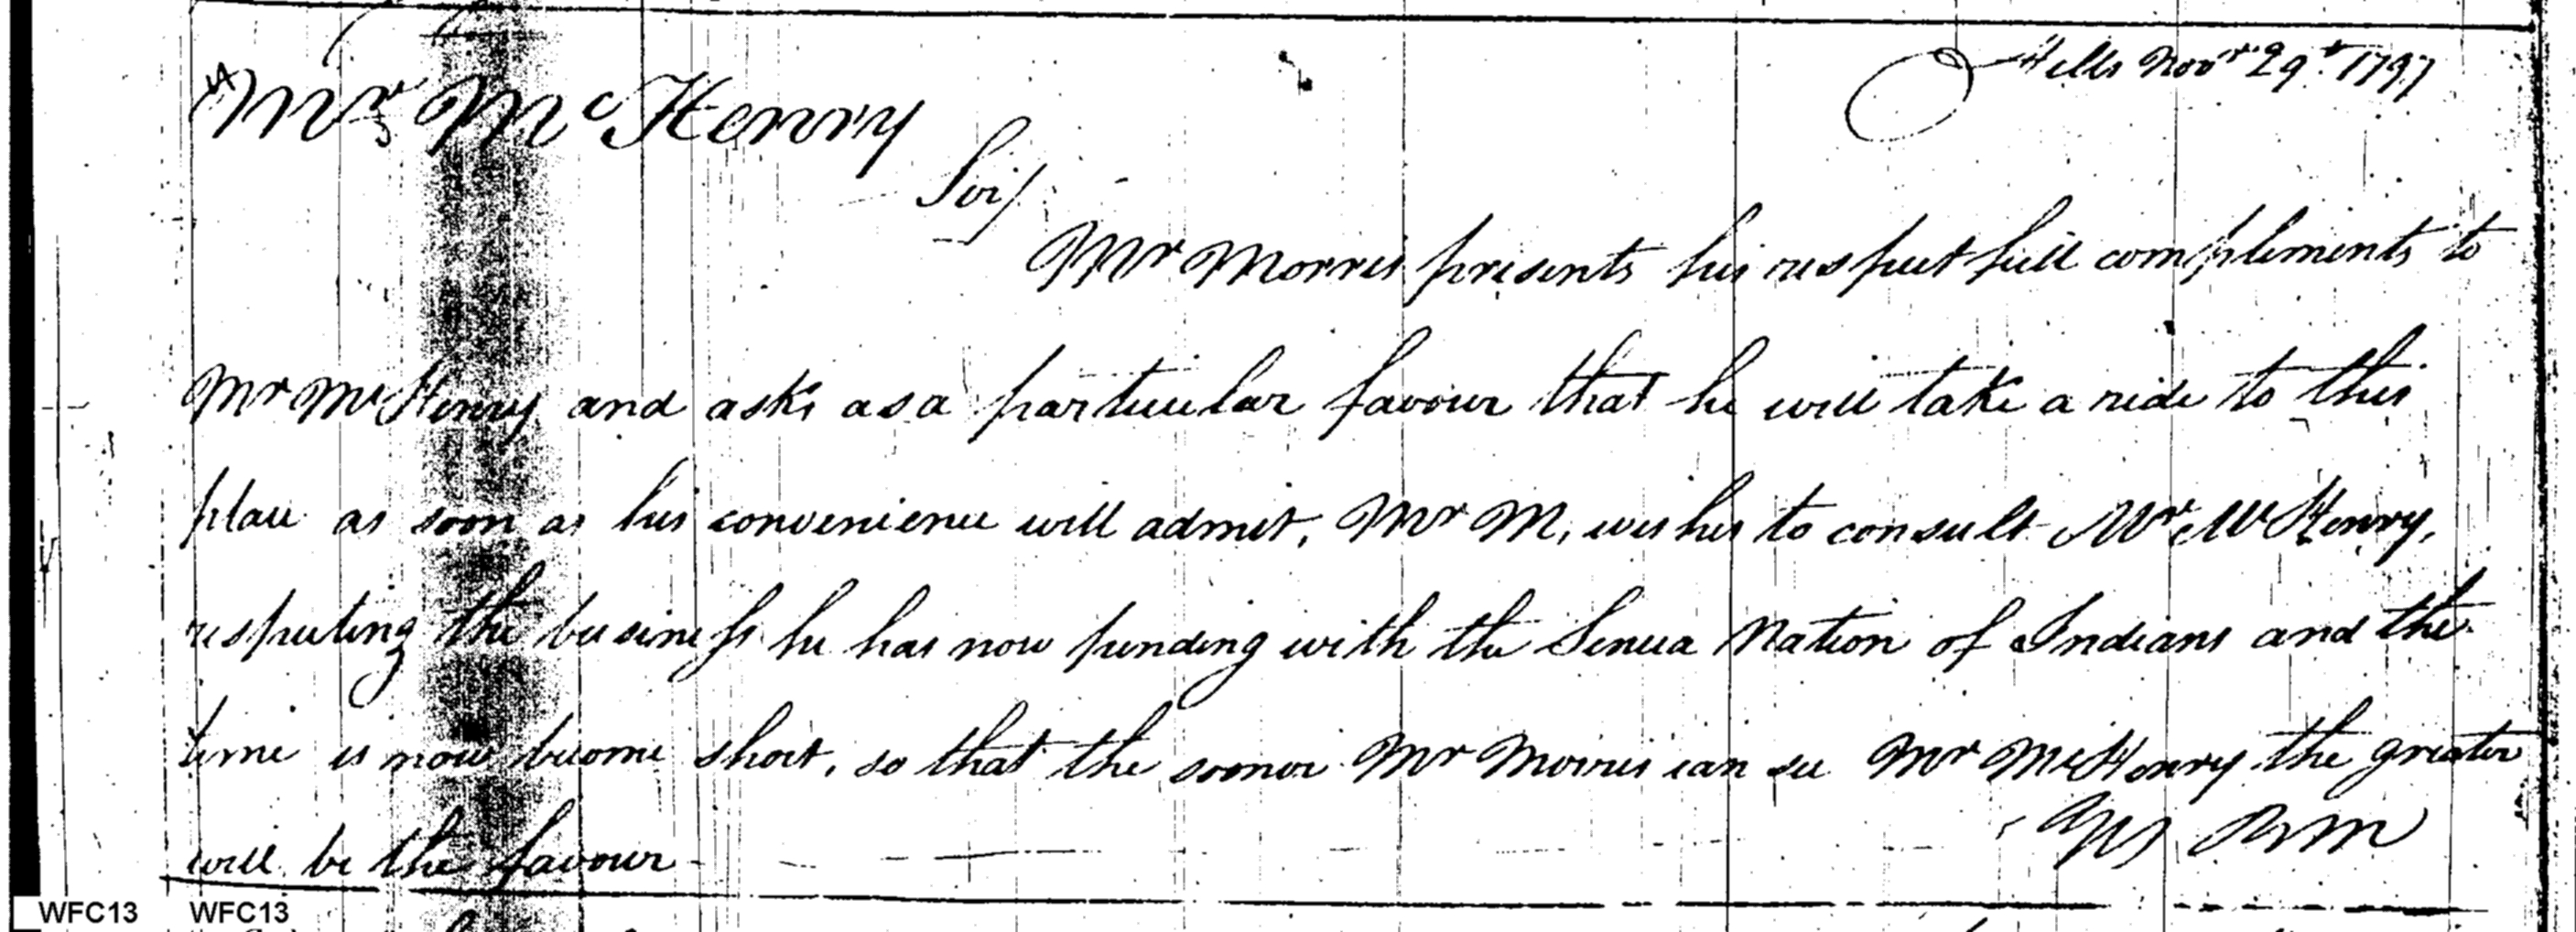 Hills Novr 29th 1797
Mr McHenry
Sir/
Mr Morris presents his respectfull complements to
Mr McHenry and asks as a particular favour that he will take a ride to this
place as soon as his convenience will admit, Mr M, wishes to consult Mr McHenry,
respecting the business he has now pending with the Seneca Nation of Indians and the
time is now become short, so that the sooner Mr Morris can see Mr McHenry the greater
will be the favour
RM
WFC13 WFC13